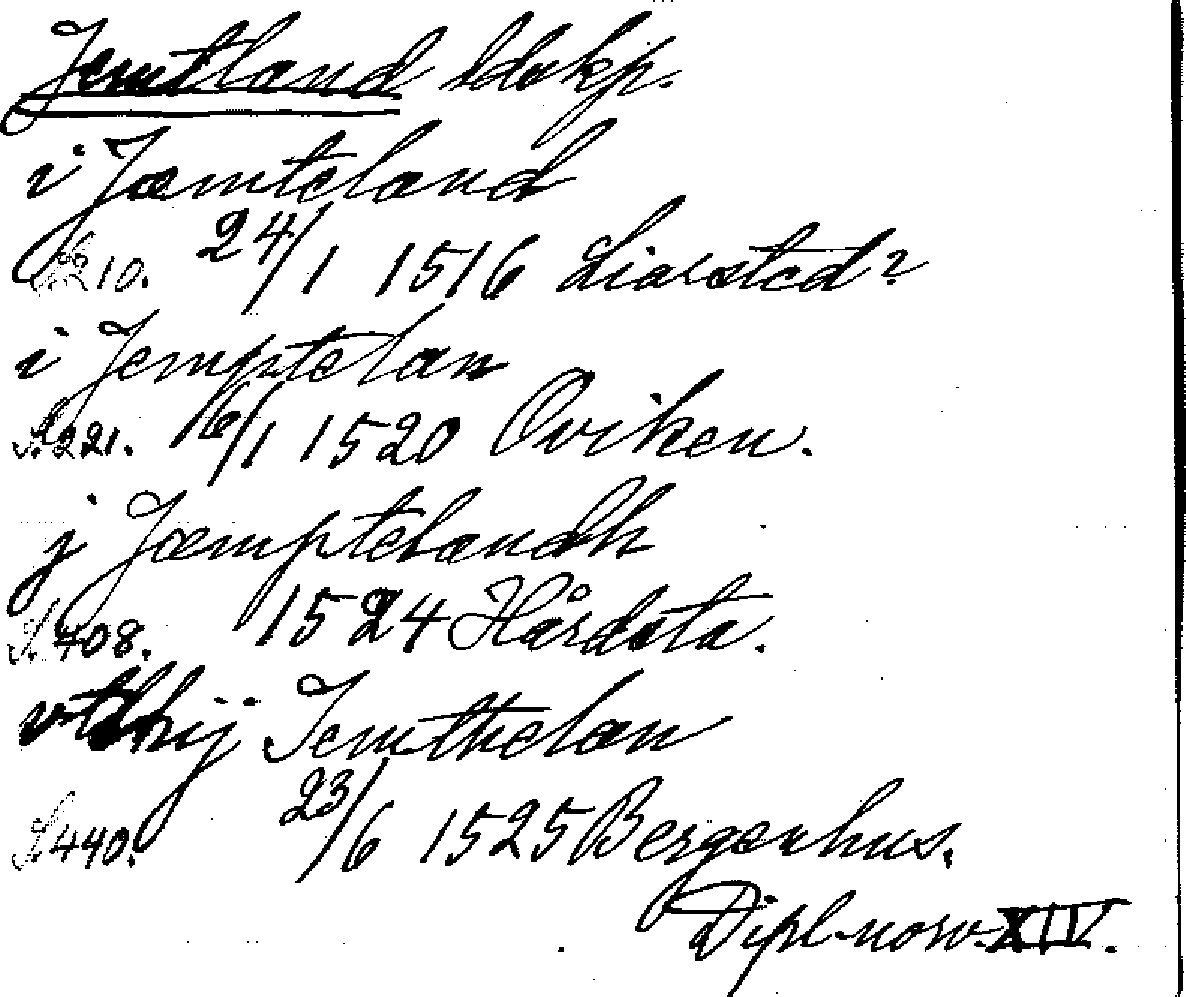 Jemtland ldskp.
i Jæmteland
S. 210. 24/1 1516 Liarstad?
i Jemptelan
S. 221. 16/1 1520 Oviken.
j Jæmptelandh
S. 408. 1524 Hårdsta.
vthij Jemthelan
S. 440. 23/6 1525 Bergenhus.
Dipl. norv. XIV.